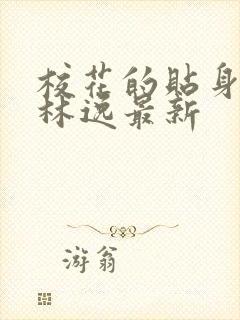 校花的贴身
林逸最新
游翁